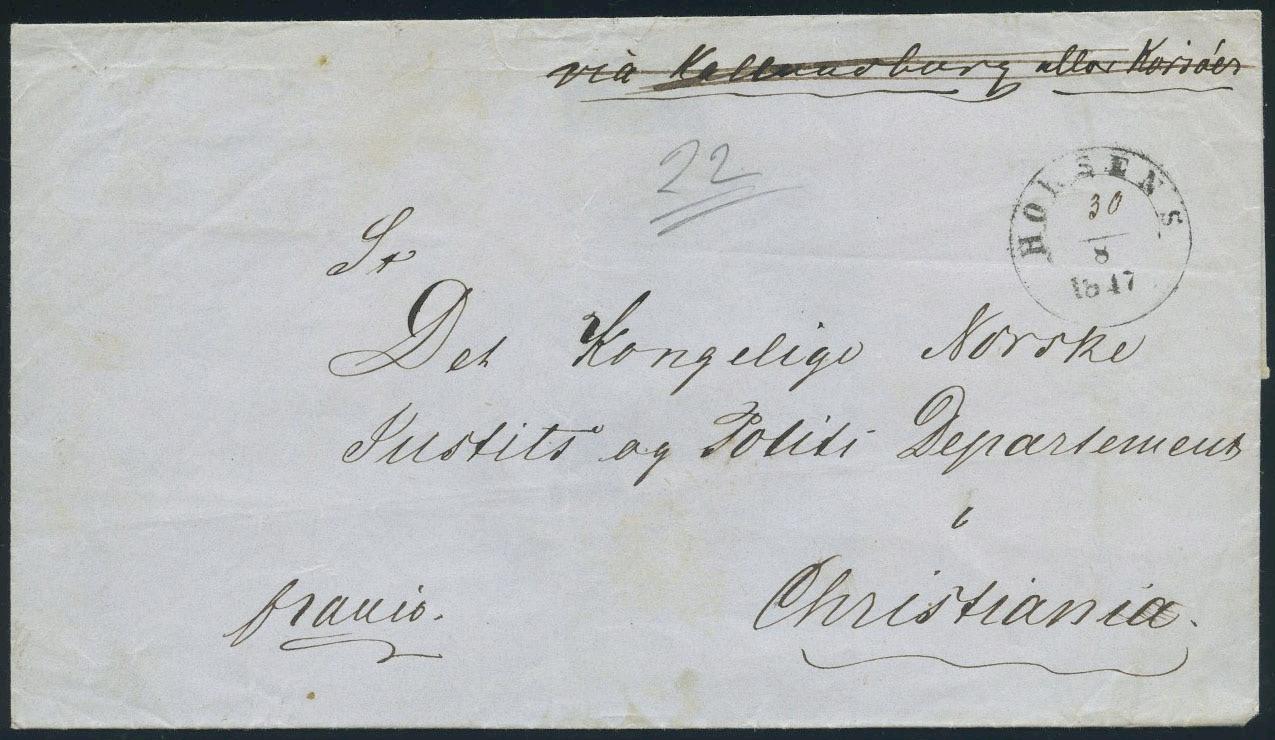 via Kallundborg eller Korsöer
22
HORSENS
30
8
1847
Det Kongelige Norske
Justits og Politi Departement
i
Christiania.
franco.